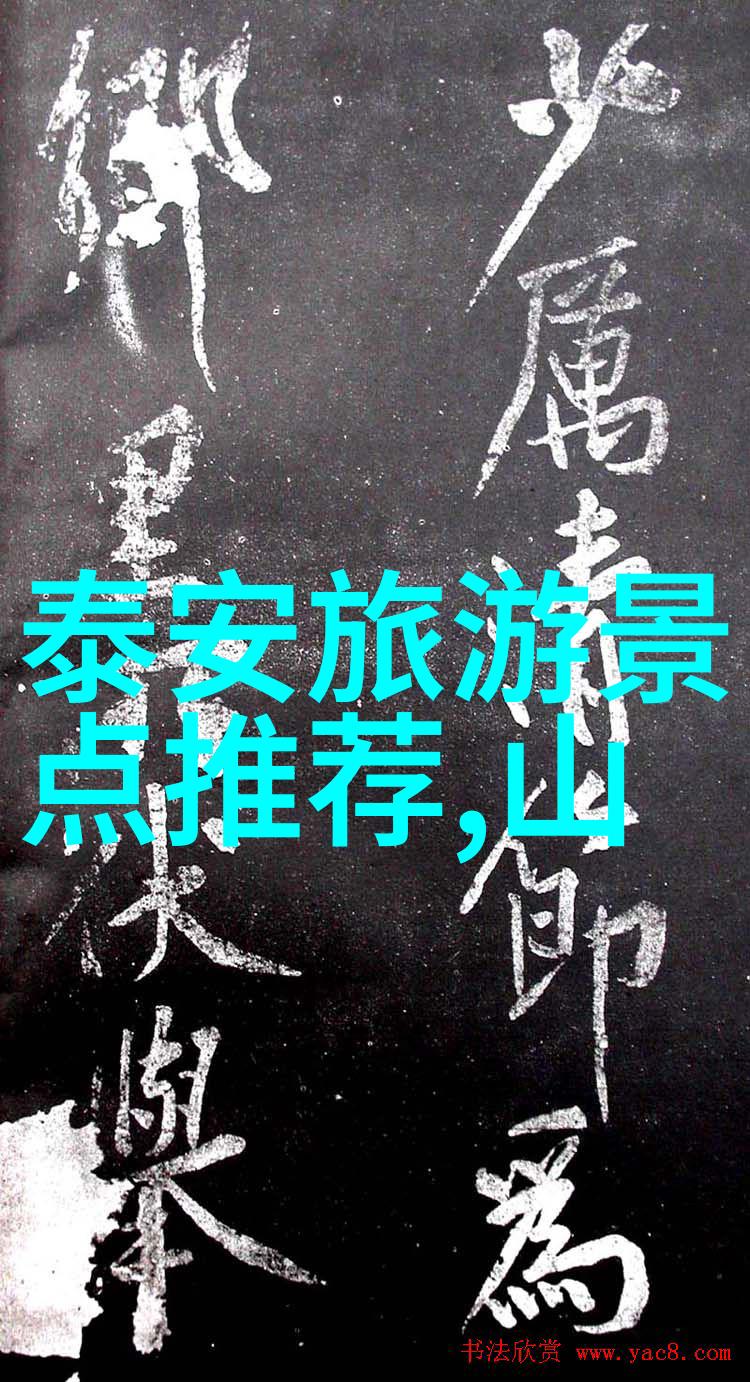 少厲清節為
鄉里伏舉
泰安旅游景
点推荐,山
书法欣赏 www.yac8.com